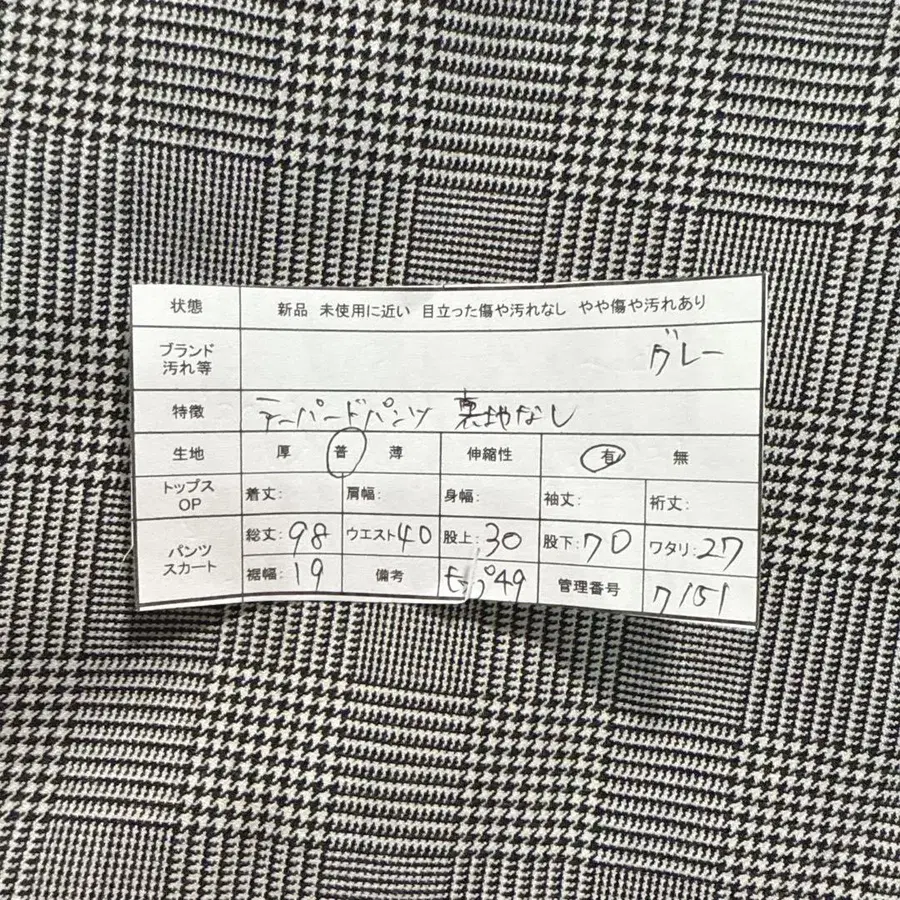 状態 新品 未使用に近い 目立った傷や汚れなし やや傷や汚れあり
ブランド 汚れ等 グレー
特徴 テーパードパンツ 裏地なし
生地 厚 普 薄 伸縮性 有 無
トップス OP 着丈: 肩幅: 身幅: 袖丈: 裄丈:
パンツ スカート 総丈:98 ウエスト40 股上:30 股下:70 ワタリ:27
裾幅:19 備考 ヒップ49 管理番号 7151